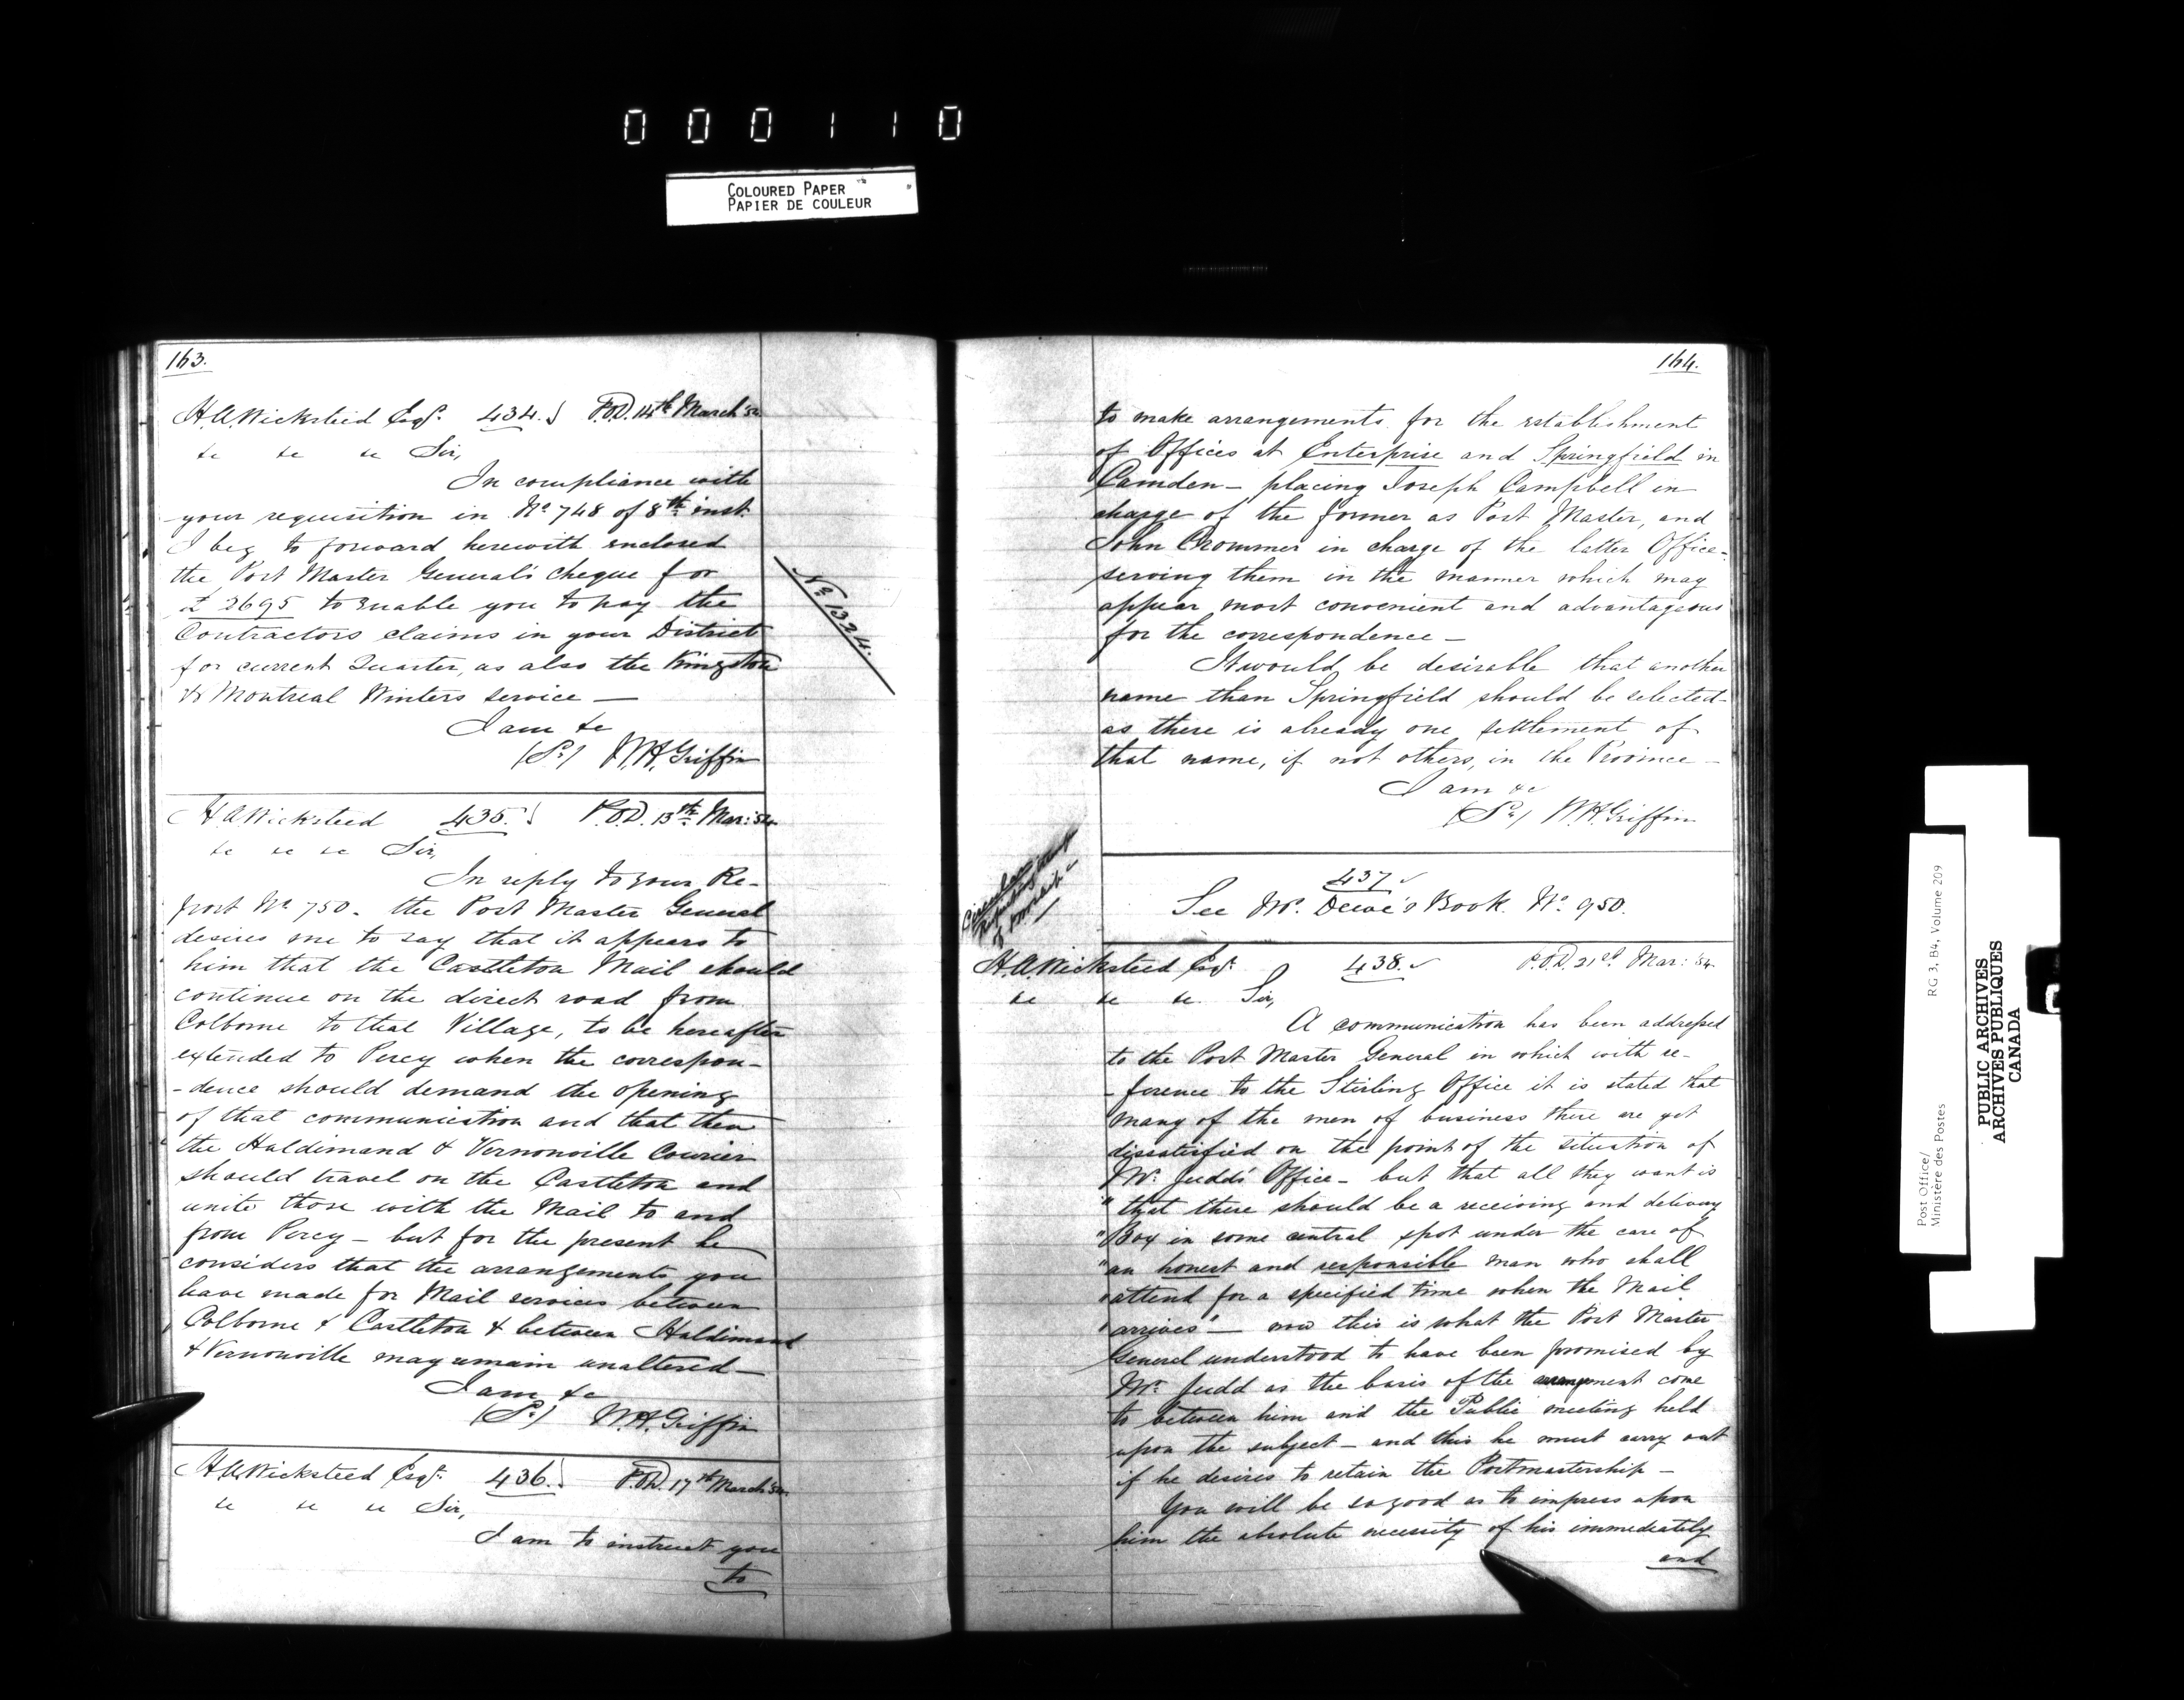 000110
COLOURED PAPER
PAPIER DE COULEUR
163.
H.A. Wicksteed Esqr. 434. P.O.D. 14th March '54
&c &c &c Sir,
In compliance with
your requisition in No 748 of 8th inst.
I beg to forward herewith enclosed
the Post Master General's cheque for
£2695 to enable you to pay the
Contractors claims in your District
for current Quarter, as also the Kingston
& Montreal Winters service —
I am &c
W.H. Griffin
No. 1324.
H.A. Wicksteed 435. P.O.D. 13th Mar: '54
&c &c &c Sir,
In reply to your Re-
port No 750. the Post Master General
desires me to say that it appears to
him that the Castleton Mail should
continue on the direct road from
Colborne to that Village, to be hereafter
extended to Percy when the correspon-
-dence should demand the opening
of that communication and that then
the Haldimand & Vernonville Courier
should travel on the Castleton and
unite those with the Mail to and
from Percy — but for the present he
considers that the arrangements you
have made for Mail services between
Colborne & Castleton & between Haldimand
& Vernonville may remain unaltered —
I am &c
W.H. Griffin
H.A. Wicksteed Esqr. 436. P.O.D. 17th March '54
&c &c &c Sir,
I am to instruct you
to
164.
to make arrangements for the establishment
of Offices at Enterprise and Springfield in
Camden — placing Joseph Campbell in
charge of the former as Post Master, and
John Crommer in charge of the latter Office —
serving them in the manner which may
appear most convenient and advantageous
for the correspondence —
It would be desirable that another
name than Springfield should be selected
as there is already one settlement of
that name, if not others, in the Province —
I am &c
W.H. Griffin
437
See Mr. Dewe's Book No. 950.
H.A. Wicksteed Esqr. 438. P.O.D. 21st Mar: '54.
&c &c &c Sir,
A communication has been addressed
to the Post Master General in which with re-
-ference to the Stirling Office it is stated that
many of the men of business there are yet
dissatisfied on the point of the situation of
Mr. Judd's Office — but that all they want is
"that there should be a receiving and delivery
"Box in some central spot under the care of
"an honest and responsible man who shall
"attend for a specified time when the Mail
"arrives" — now this is what the Post Master
General understood to have been promised by
Mr. Judd as the basis of the arrangement come
to between him and the Public meeting held
upon the subject — and this he must carry out
if he desires to retain the Postmastership —
You will be so good as to impress upon
him the absolute necessity of his immediately
and
Post Office/
Ministère des Postes
RG 3, B4, Volume 209
PUBLIC ARCHIVES
ARCHIVES PUBLIQUES
CANADA